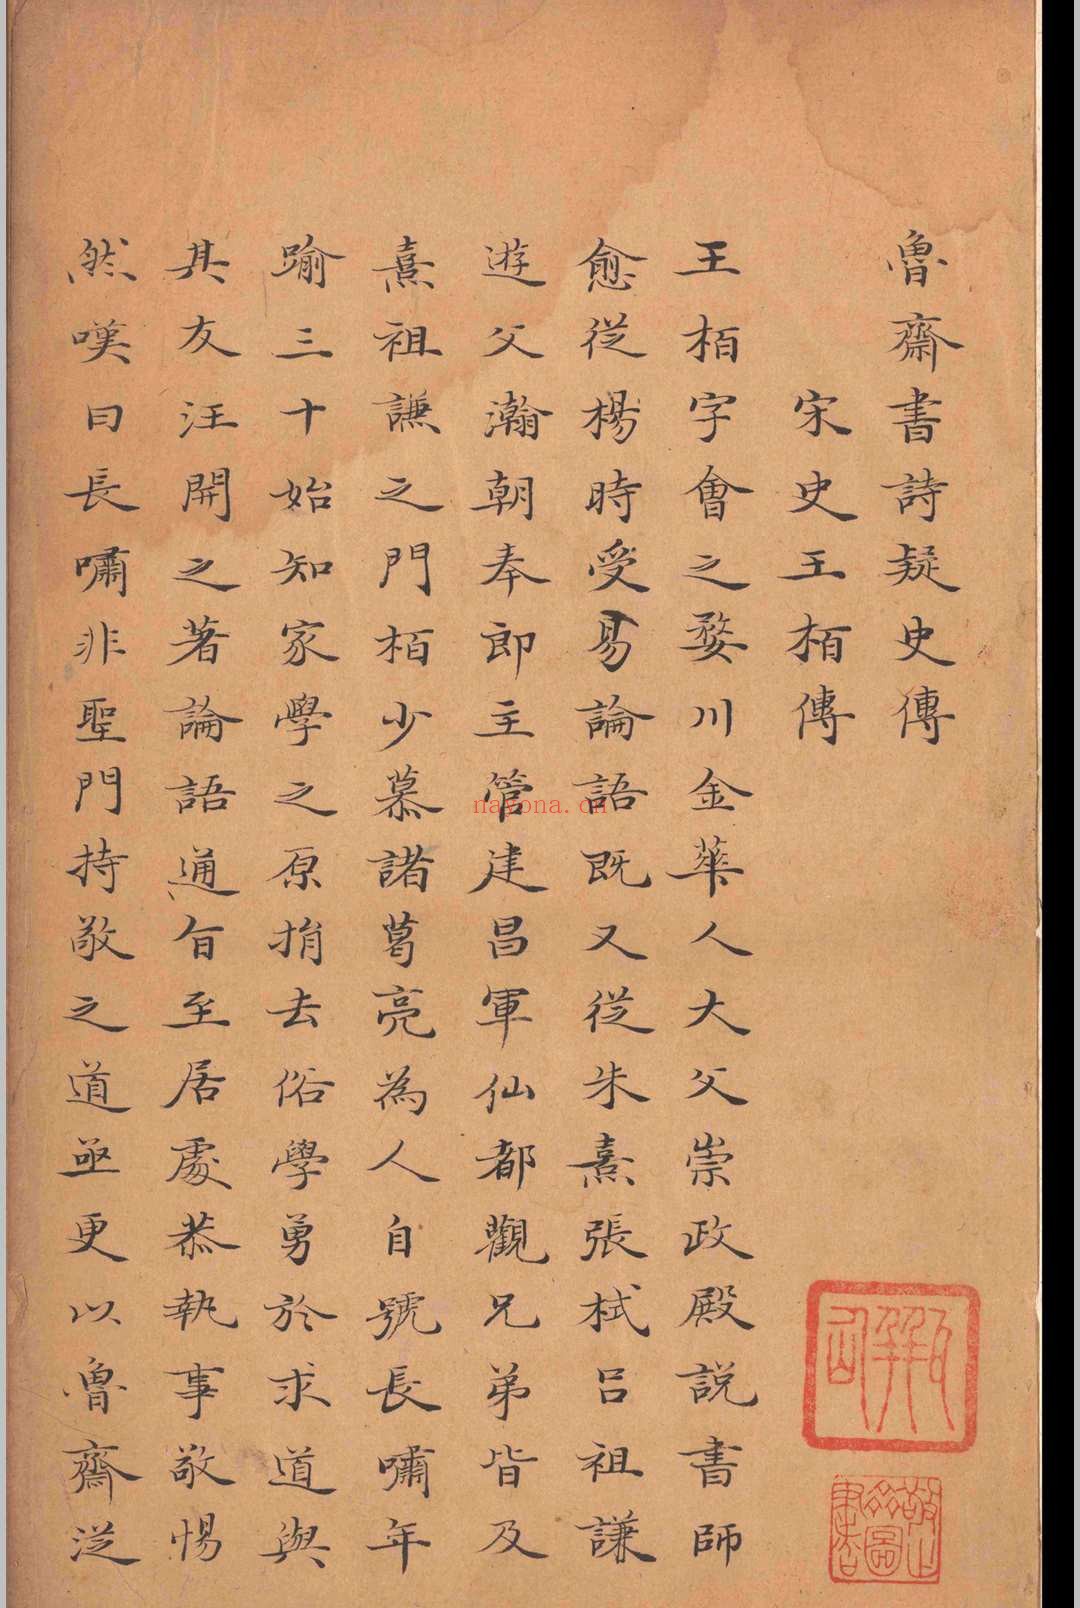 魯齋書詩疑史傳
宋史王栢傳
王栢字會之婺川金華人大父崇政殿說書師
愈從楊時受易論語既又從朱熹張栻呂祖謙
遊父瀚朝奉郎主管建昌軍仙都觀兄弟皆及
熹祖謙之門栢少慕諸葛亮為人自號長嘯年
踰三十始知家學之原捐去俗學勇於求道與
其友汪開之著論語通旨至居處恭執事敬惕
然嘆曰長嘯非聖門持敬之道亟更以魯齋從
nayona.cn